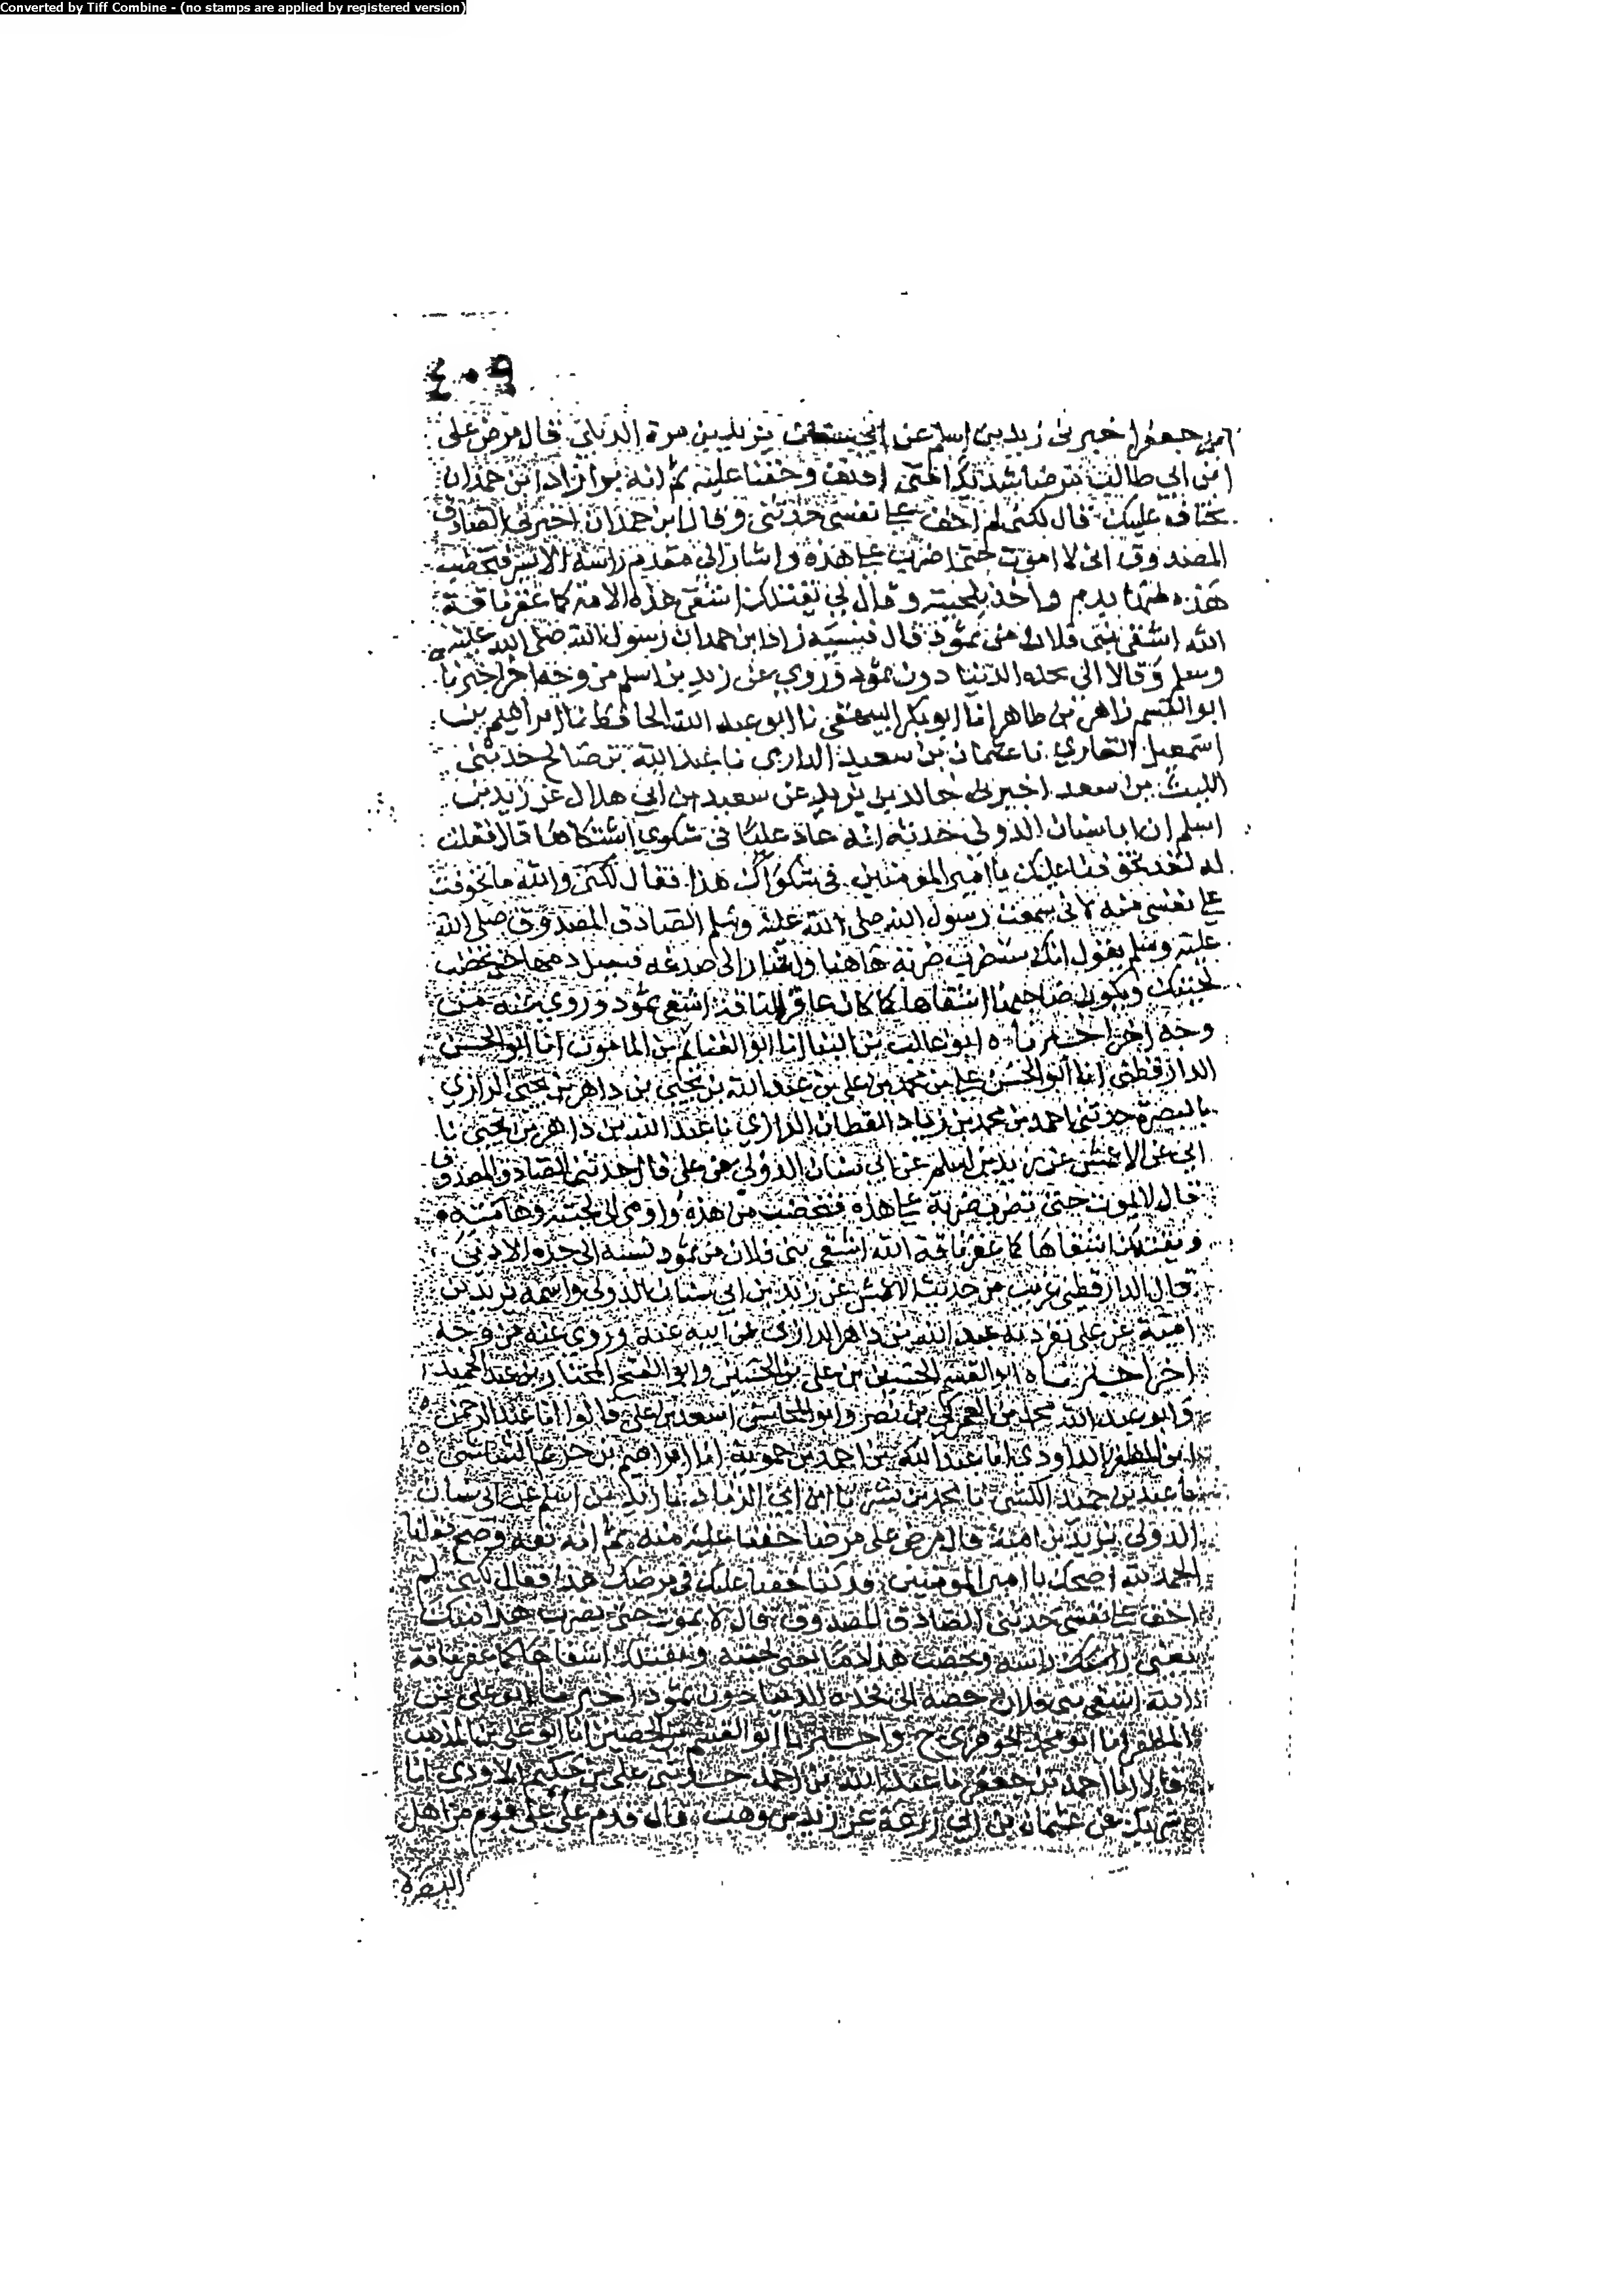 Converted by Tiff Combine - (no stamps are applied by registered version)
٤٠٩
بن جعفر اخبرني زيد بن اسلم عن ابي يزيد بن مرة الديلي قال مرض علي
ابن ابي طالب مرضا شديدا حتى ادنف وخفنا عليه ثم انه برا زاد ابن حمدان
نخاف عليك قال لكني لم اخف على نفسي حدثني وقال ابن حمدان اخبرني الصادق
المصدوق اني لا اموت حتى اضرب على هذه واشار الى مقدم راسه الايسر فتخضب
هذه منها بدم واخذ بلحيته وقال لي يقتلك اشقى هذه الامة كما عقر ناقة
الله اشقى بني فلان من ثمود قال فنسبه زاد ابن حمدان رسول الله صلى الله عليه
وسلم وقالا الى الدنيا دون ثمود وروي عن زيد بن اسلم من وجه اخر اخبرنا
ابو القسم زاهر بن طاهر انا ابو بكر البيهقي نا ابو عبد الله الحافظ نا ابراهيم بن
اسمعيل القاري نا عثمان بن سعيد الدارمي نا عبد الله بن صالح حدثني
الليث بن سعد اخبرني خالد بن يزيد عن سعيد بن ابي هلال عن زيد بن
اسلم ان ابا سنان الدولي حدثه انه عاد عليا في شكوى اشتكاها قال فقلت
له لقد تخوفنا عليك يا امير المومنين في شكواك هذا فقال لكني والله ما تخوفت
على نفسي منه لاني سمعت رسول الله صلى الله عليه وسلم الصادق المصدوق صلى الله
عليه وسلم يقول انك ستضرب ضربة هاهنا واشار الى صدغه فيسيل دمها حتى تخضب
لحيتك ويكون صاحبها اشقاها كما كان عاقر الناقة اشقى ثمود وروي عنه من
وجه اخر اخبرناه ابو غالب بن البنا انا ابو الغنايم بن المامون انا ابو الحسن
الدارقطني انا ابو الحسن علي بن محمد بن علي بن عبد الله بن يحيى بن داهر بن يحيى الرازي
بالبصرة حدثني احمد بن محمد بن زياد القطان الرازي نا عبد الله بن داهر بن يحيى نا
ابي عن الاعمش عن زيد بن اسلم عن ابي سنان الدولي عن علي قال حدثني الصادق المصدوق
قال لا يموت حتى تضرب ضربة على هذه فتخضب من هذه واومى الى لحيته وهامته
ويقتلك اشقاها كما عقر ناقة الله اشقى بني فلان من ثمود نسبه الى جده الادنى
قال الدارقطني غريب من حديث الاعمش عن زيد بن ابي سنان الدولي واسمه يزيد بن
امية عن علي تفرد به عبد الله بن داهر الرازي عن ابيه عنه وروي عنه من وجه
اخر اخبرناه ابو القسم الحسين بن علي بن الحسين وابو الفتح المختار بن عبد الحميد
وابو عبد الله محمد بن العمركي بن نصر وابو المحاسن اسعد بن علي قالوا انا عبد الرحمن
ابن المظفر الداودي انا عبد الله بن احمد بن حمويه انا ابراهيم بن خزيم الشاشي
نا عبد بن حميد الكشي نا محمد بن بشر نا ابن ابي الزناد نا زيد بن اسلم عن ابي سنان
الدولي يزيد بن امية قال مرض علي مرضا خفنا عليه منه ثم انه نقه وصح فقلنا
الحمد لله اصحك يا امير المومنين قد كنا خفنا عليك في مرضك هذا فقال لكني لم
اخف على نفسي حدثني الصادق المصدوق قال لا يموت حتى يضرب هذا منك
يعني راسه وتخضب هذا دما يعني لحيته ويقتلك اشقاها كما عقر ناقة
الله اشقى بني فلان خصه الى فخذه الدنيا دون ثمود اخبرنا ابو علي بن
المظفر انا ابو محمد الجوهري ح واخبرنا ابو القسم بن الحصين انا ابو علي بن المذهب
قالا انا احمد بن جعفر نا عبد الله بن احمد حدثني علي بن حكيم الاودي انا
شريك عن عثمان بن ابي زرعة عن زيد بن وهب قال قدم علي على قوم من اهل
البصرة